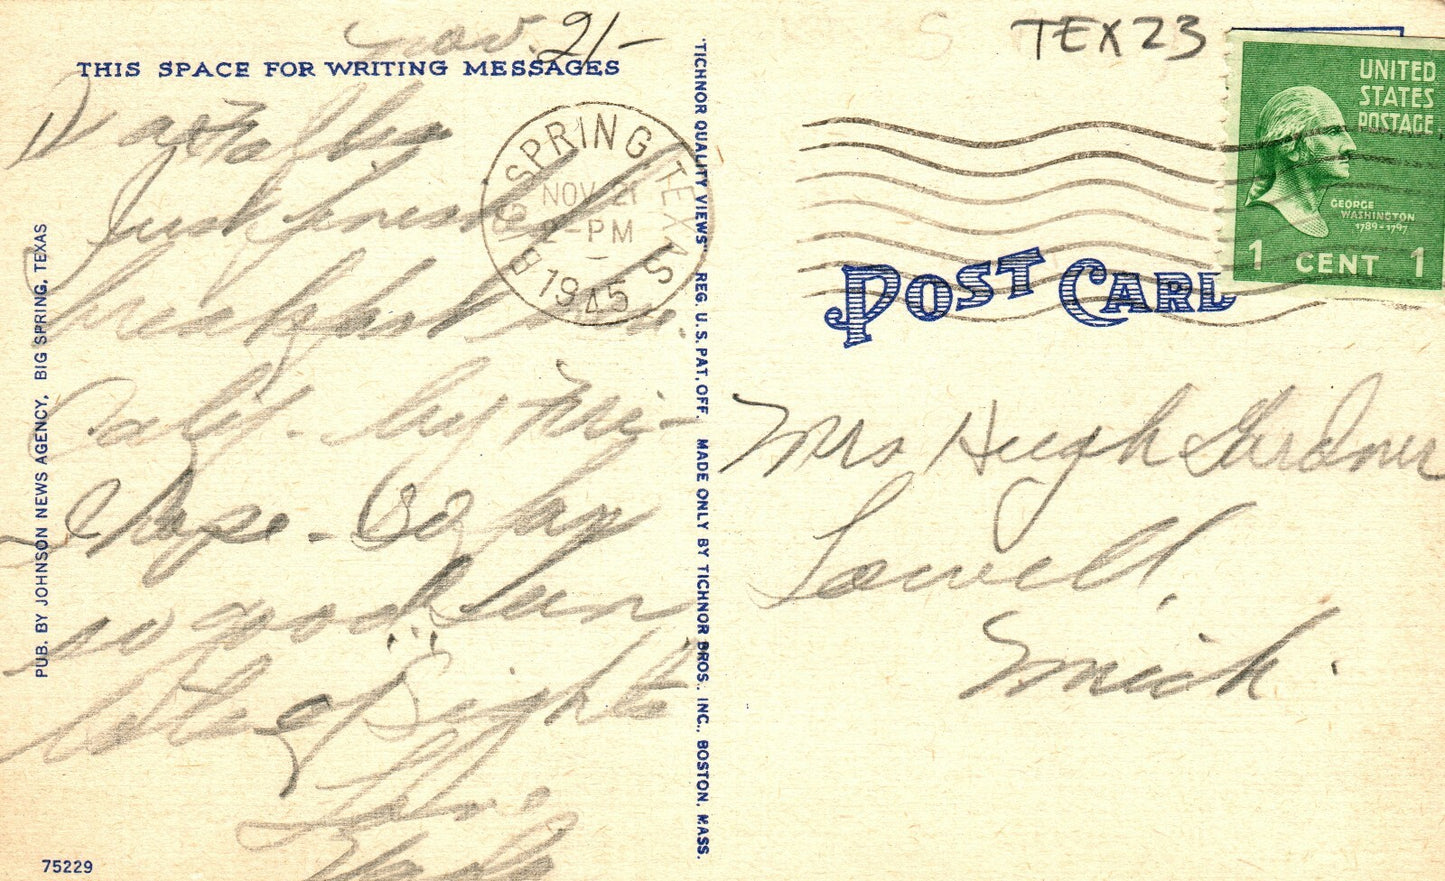 Nov. 21-
THIS SPACE FOR WRITING MESSAGES
Just finished
breakfast
Calif. by
So far
so good. Seen
lots of Sights
Love
PUB. BY JOHNSON NEWS AGENCY, BIG SPRING, TEXAS
75229
BIG SPRING TEXAS
NOV 21
2-PM
1945
"TICHNOR QUALITY VIEWS" REG. U. S. PAT. OFF. MADE ONLY BY TICHNOR BROS., INC., BOSTON, MASS.
TEX 23
UNITED
STATES
POSTAGE
GEORGE
WASHINGTON
1789-1797
1 CENT 1
POST CARD
Mrs Hugh Gardner
Lowell,
Mich.